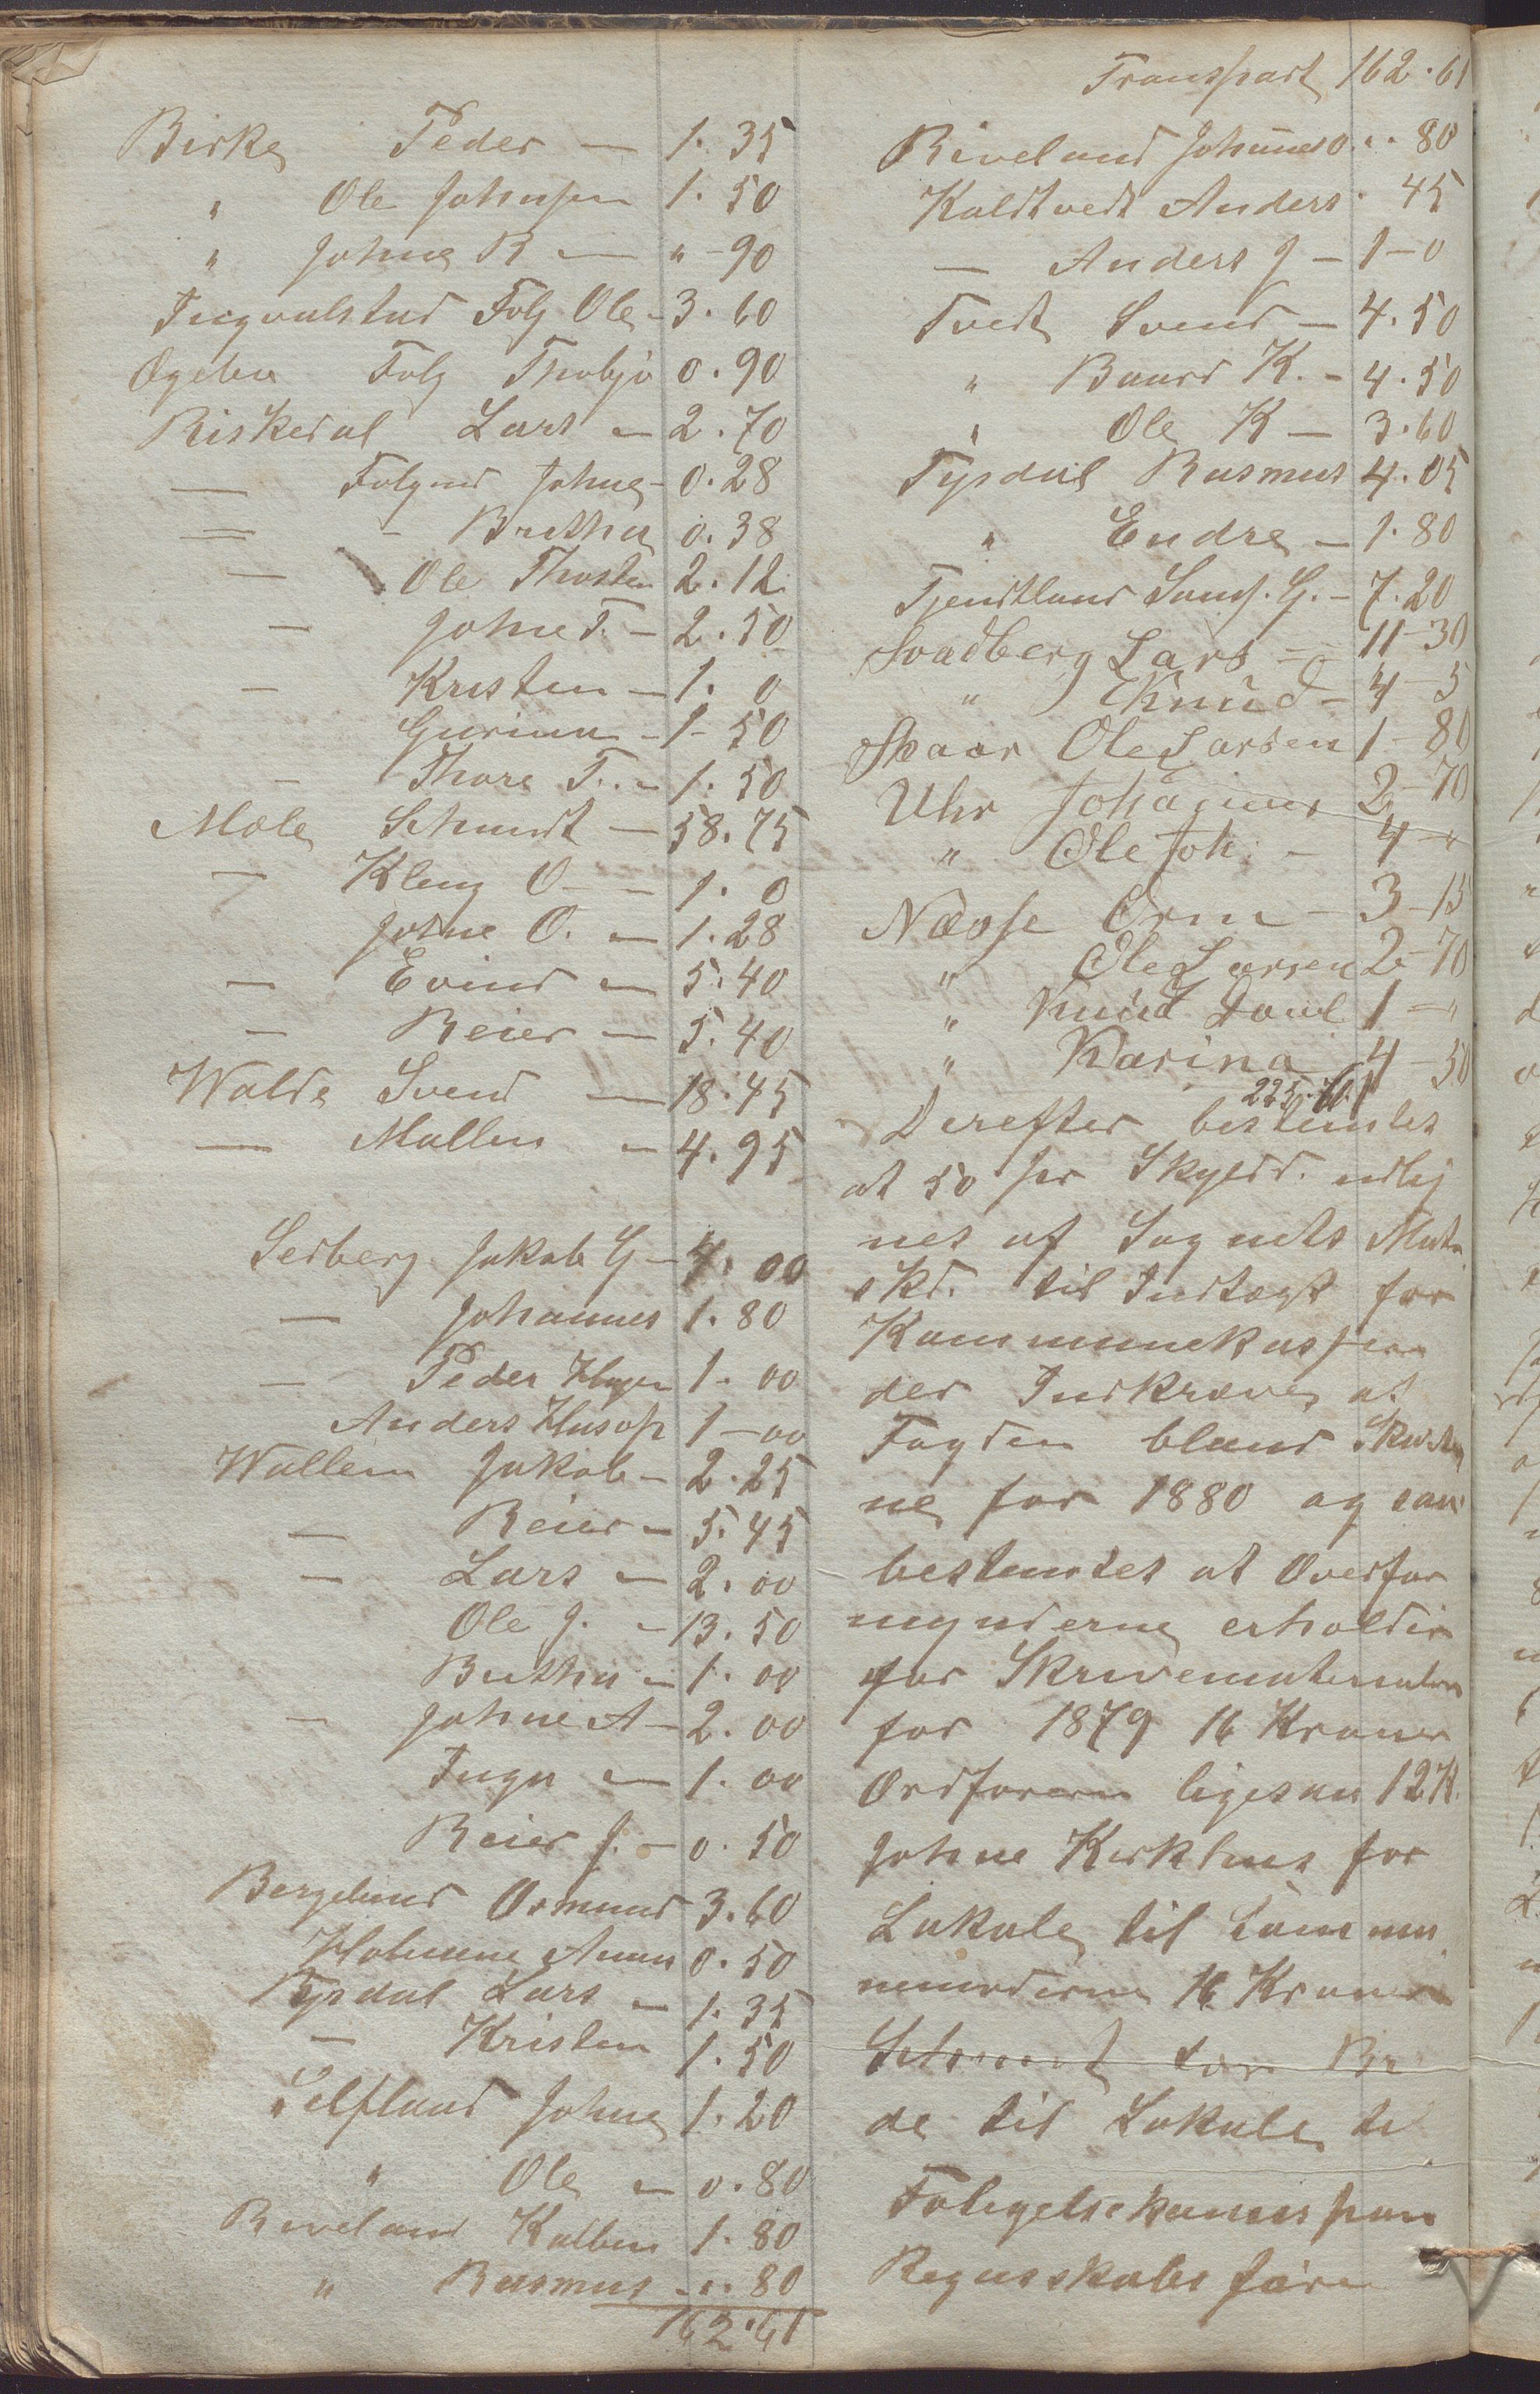 Birke Peder — 1. 35
" Ole Johnsen 1. 50
" Johne R — " - 90
Ingvalstad Folg Ole - 3. 60
Øgelen Folg Thobjø 0. 90
Riskedal Lars — 2. 70
— Folgmd Johne - 0. 28
— - Britha 0. 38
— Ole Thosten 2. 12
— Johne T. — 2. 50
— Kristen — 1. 0
Gurina - 1 - 50
— Thore T. — 1. 50
Mæle Schmidt — 58. 75
— Kleng O — 1. 0
Johne O. — 1. 28
— Evind — 5. 40
— Reier — 5. 40
Walde Svend — 18. 45
— Mallin — 4. 95
Sedberg Jakob G — 4. 00
— Johannes 1. 80
— Peder Hagen 1 - 00
Anders Husop 1 - 00
Wallem Jakob — 2. 25
— Reier — 5. 45
— Lars — 2. 00
Ole J. — 13. 50
Britha — 1. 00
— Johne A — 2. 00
Inga — 1. 00
Reier J. — 0. 50
Bergeland Osmund 3. 60
Holmene Anna 0. 50
Tysdal Lars — 1. 35
— Kristen 1. 50
Selfland Johne 1. 20
" Ole — 0. 80
Riveland Kolben 1. 80
" Rasmus - ". 80
162. 61
Transport 162. 61
Riveland Johannes O. ". 80
Kaldtvedt Anders . 45
— Anders J — 1 - 0
Tvedt Svend — 4. 50
" Baard K. - 4. 50
" Ole K — 3. 60
Tysdal Rasmus 4. 05
" Endre — 1. 80
Tjendtland Sams. G. — 7. 20
Svadberg Lars — 11 - 30
" Knud - 4 - 5
Skaar Ole Larsen 1 - 80
Uhr Johannes 2 - 70
" Ole Joh. — 4 - "
Næsse Orm — 3 - 15
" Ole Larsen 2 - 70
" Knud Davl 1 - "
" Karina 4 - 50
225. 76
Derefter bestemtes
at 50 pr Skyldd. udlig
nes af Sognets Matr.
skd. til Indtægt for
Kommunekassen
der Indkræves af
Fogden bland Skatte
ne for 1880 og saa
bestemtes at Overfor
mynderne erholder
for Skrivematerialer
for 1879 16 Kroner
Ordføreren ligesaa 12 K.
Johne Kirkhus for
Lokale til Kommu
16 Kroner
Schmidt
de til Lokale til
Regnskabsføre